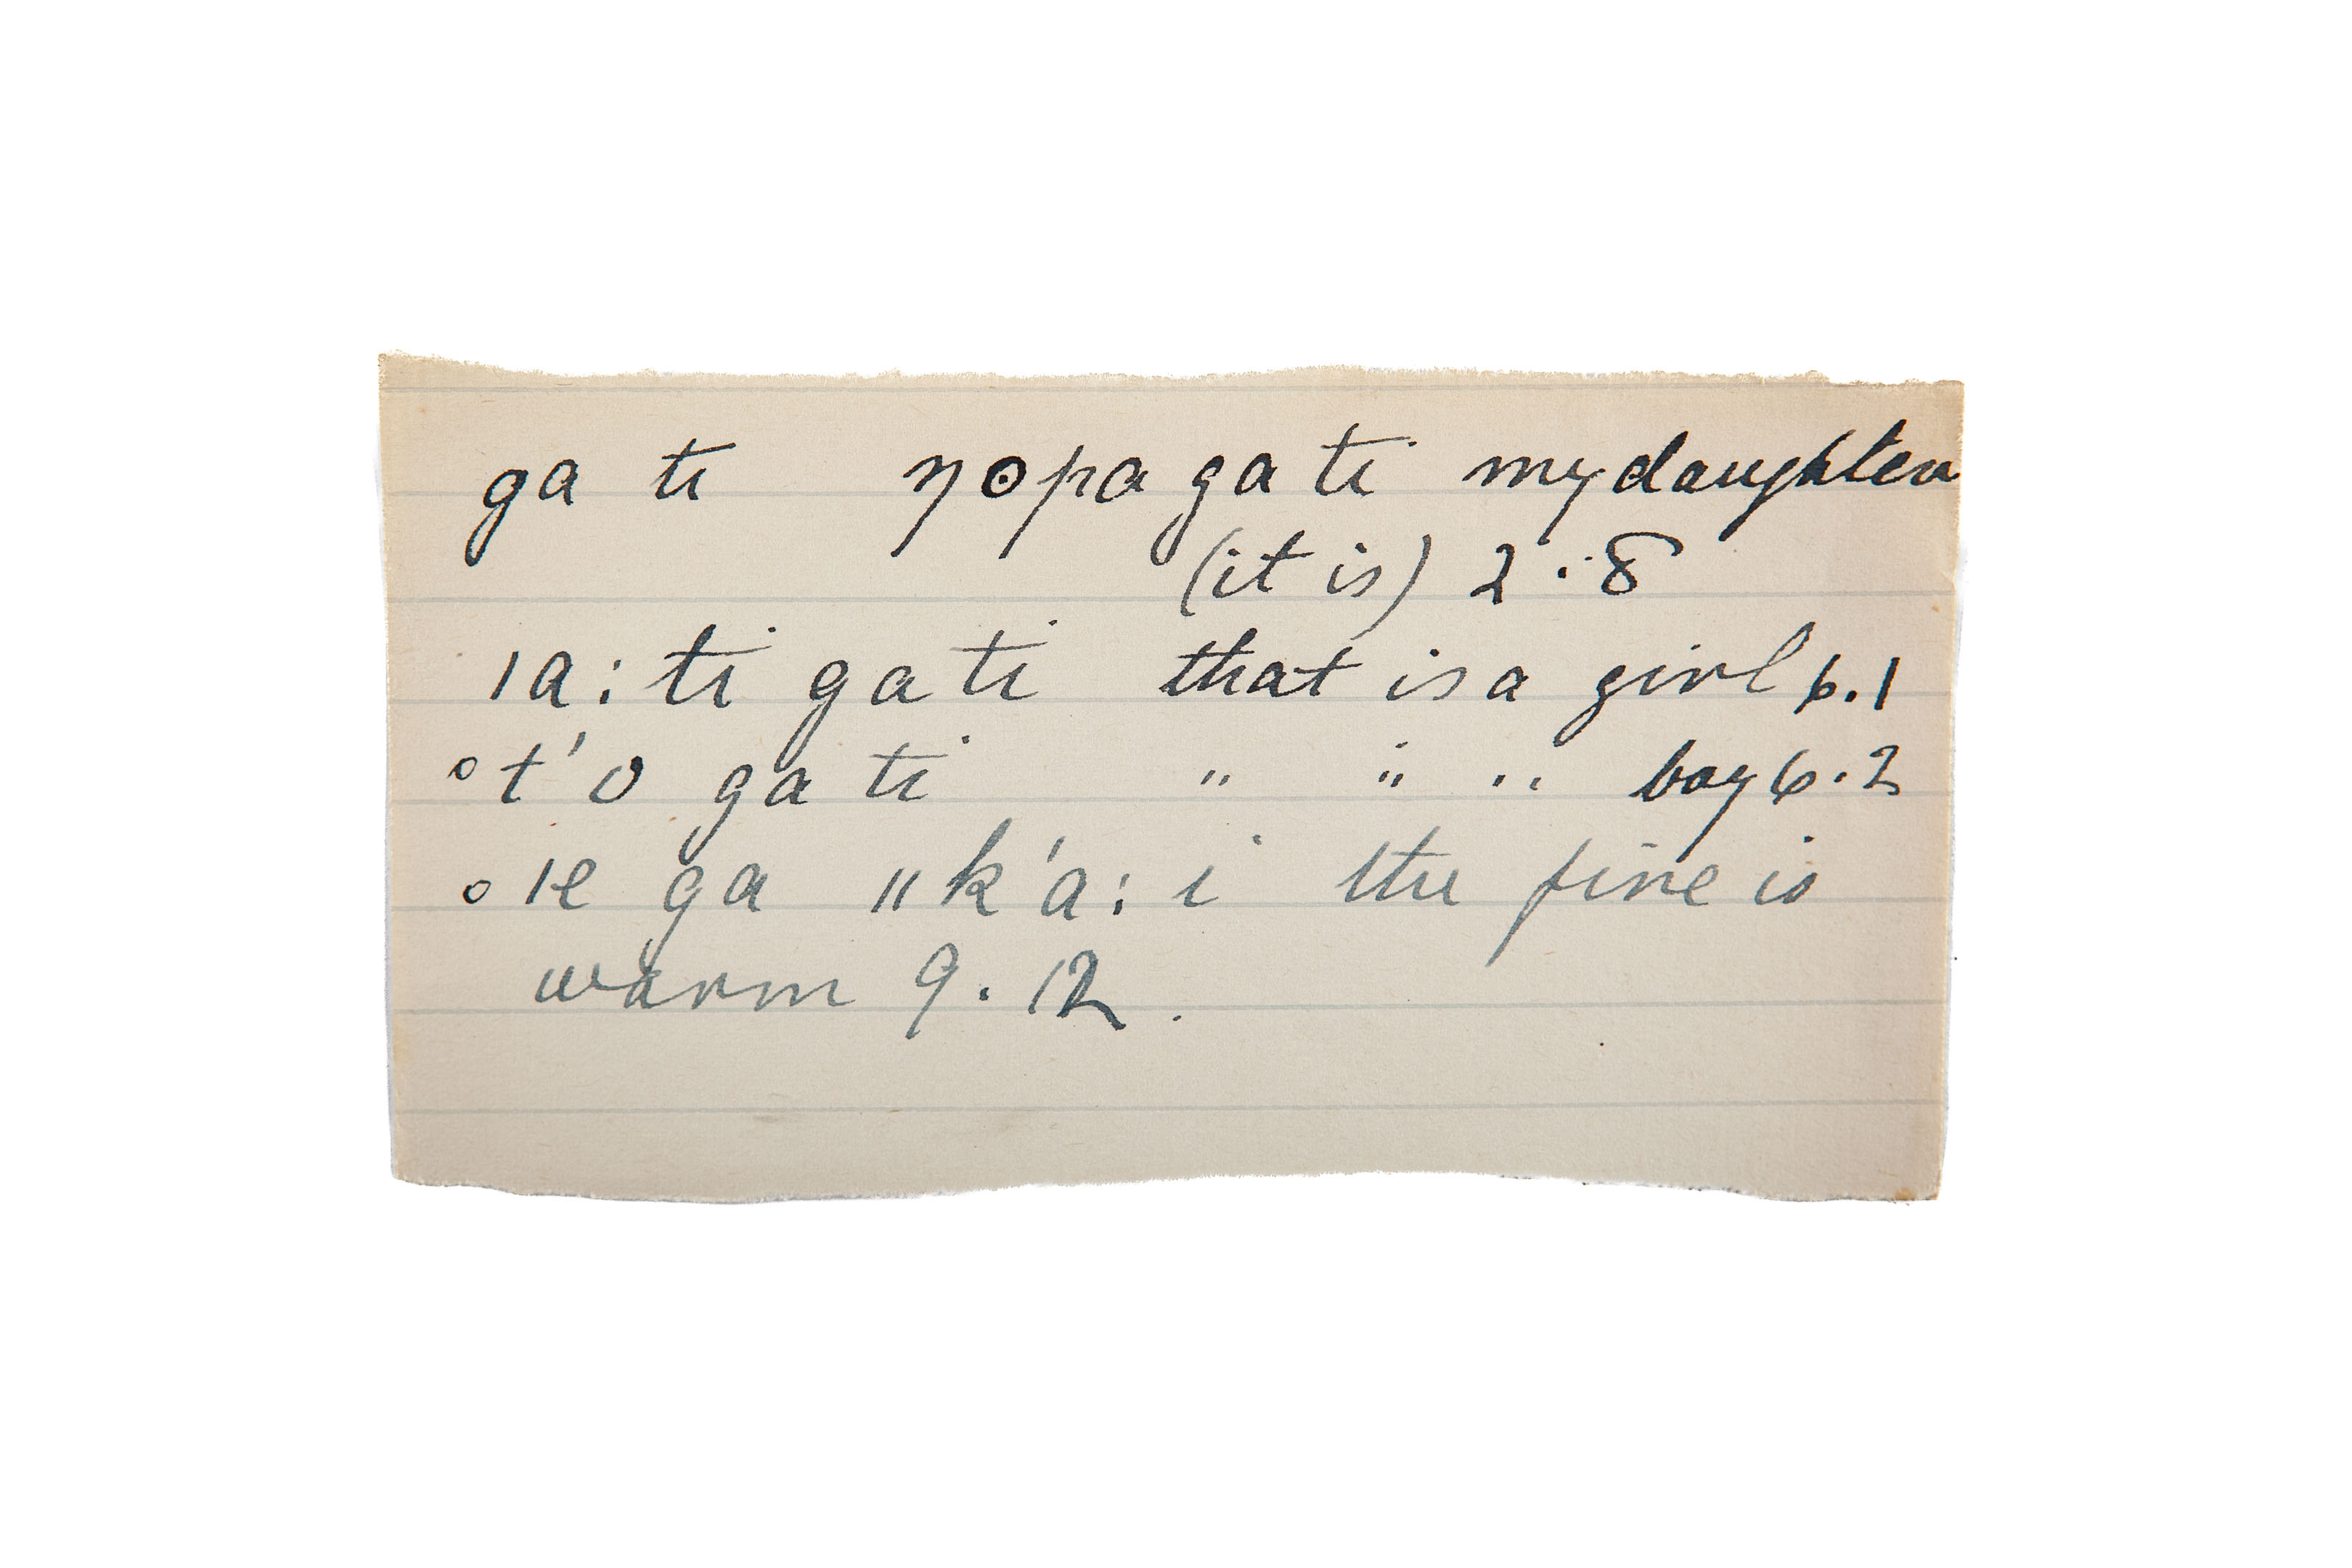 ga ti ŋʘpa ga ti my daughter
(it is) 2.8
ǀa: ti ga ti that is a girl 6.1
° t'o ga ti " " " boy 6.2
° ǀe ga ǁk'a: i the fire is
warm 9.12.